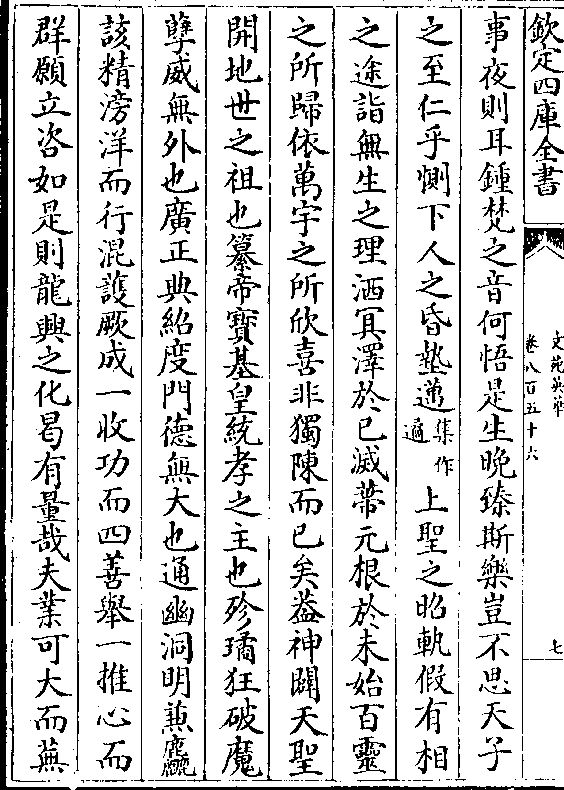 欽定四庫全書
文苑英華
卷八百五十六
七
事夜則耳鍾梵之音何悟是生晚臻斯樂豈不思天子
之至仁乎惻下人之昏墊遵集作遹上聖之昭軌假有相
之途詣無生之理洒冥澤於已滅蒂元根於未始百靈
之所歸依萬宇之所欣喜非獨陳而已矣葢神闢天聖
開地世之祖也纂帝寶基皇統孝之主也殄獝狂破魔
孽威無外也廣正典紹度門德無大也通幽洞明兼麤
該精滂洋而行混䕶厥成一收功而四善舉一推心而
群願立咨如是則龍興之化曷有量哉夫業可大而蕪